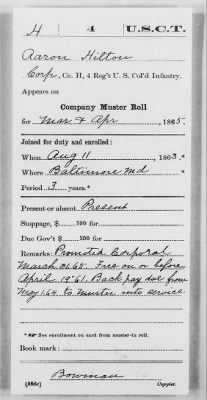 H 4 U.S.C.T.
Aaron Hilton
Corp, Co. H, 4 Reg't U. S. Col'd Infantry.
Appears on
Company Muster Roll
for Mar & Apr, 1865.
Joined for duty and enrolled:
When Aug 11, 1863.*
Where Baltimore Md
Period 3 years.*
Present or absent Present
Stoppage, $ 100 for
Due Gov't $ 100 for
Remarks: Promoted Corporal
March 65. Free on or before
April 19" 61. Back pay due from
May 1/64 to muster into service
* See enrollment on card from muster-in roll.
Book mark:
Bowman
(858c) Copyist.